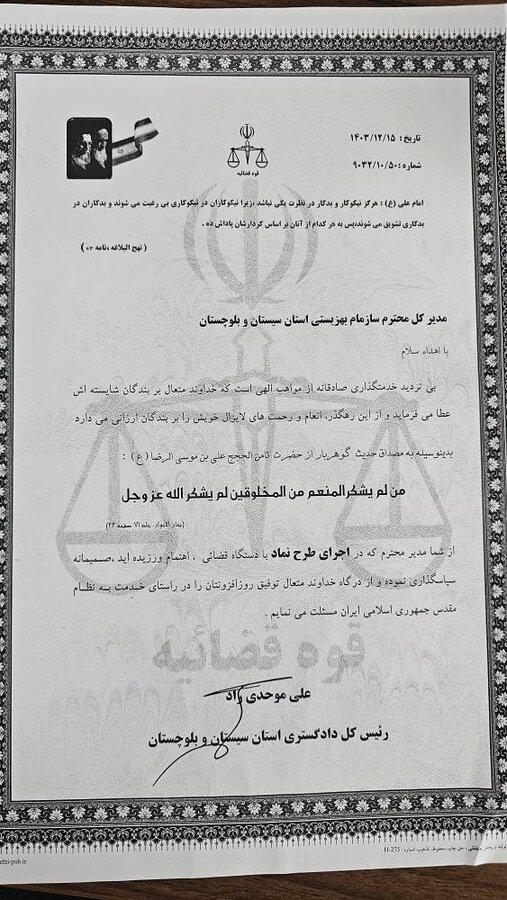 تاریخ: ۱۴۰۳/۱۲/۱۵
شماره: ۹۰۳۲/۱۰/۵۰
قوه قضائیه
امام علی (ع) : هرگز نیکوکار و بدکار در نظرت یکی نباشد ،زیرا نیکوکاران در نیکوکاری بی رغبت می شوند و بدکاران در
بدکاری تشویق می شوند،پس به هر کدام از آنان بر اساس کردارشان پاداش ده .
( نهج البلاغه ،نامه ۵۳ )
مدیر کل محترم سازمام بهزیستی استان سیستان و بلوچستان
با اهداء سلام
بی تردید خدمتگذاری صادقانه از مواهب الهی است که خداوند متعال بر بندگان شایسته اش
عطا می فرماید و از این رهگذر، انعام و رحمت های لایزال خویش را بر بندگان ارزانی می دارد
بدینوسیله به مصداق حدیث گوهربار از حضرت ثامن الحجج علی بن موسی الرضا (ع) :
من لم یشکرالمنعم من المخلوقین لم یشکرالله عزوجل
(بحارالانوار جلد ۷۱ صفحه ۴۴)
از شما مدیر محترم که در اجرای طرح نماد با دستگاه قضائی ، اهتمام ورزیده اید ،صمیمانه
سپاسگذاری نموده و از درگاه خداوند متعال توفیق روزافزونتان را در راستای خدمت به نظام
مقدس جمهوری اسلامی ایران مسئلت می نمایم .
قوه قضائیه
علی موحدی راد
رئیس کل دادگستری استان سیستان و بلوچستان